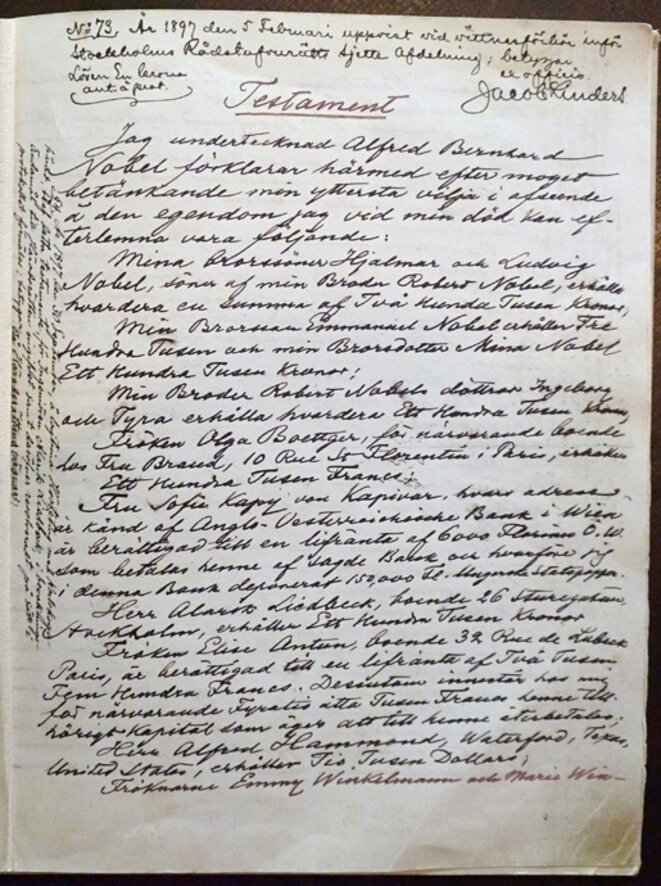 No 73. År 1897 den 5 Februari uppvist vid vittnesförhör inför
Stockholms Rådstufvurätts sjette Afdelning; betygar
ex officio.
Jacob Lünders.
Testament
Jag undertecknad Alfred Bernhard
Nobel förklarar härmed efter moget
betänkande min yttersta vilja i afseende
å den egendom jag vid min död kan ef-
terlemna vara följande:
Mina Brorsöner Hjalmar och Ludvig
Nobel, söner af min Broder Robert Nobel, erhålla
hvardera en summa af Två Hundra Tusen Kronor;
Min Brorson Emmanuel Nobel erhåller Tre
Hundra Tusen och min Brorsdotter Mina Nobel
Ett Hundra Tusen Kronor;
Min Broder Robert Nobels döttrar Ingeborg
och Tyra erhålla hvardera Ett Hundra Tusen Kronor;
Fröken Olga Boettger, för närvarande boende
hos Fru Brand, 10 Rue St Florentin i Paris, erhåller
Ett Hundra Tusen Francs;
Fru Sofie Kapy von Kapivar, hvars adress
är känd af Anglo-Oesterreichische Bank i Wien
är berättigad till en lifränta af 6000 Florins Ö.W.
som betalas henne af sagde Bank och hvarföre jag
i denna Bank deponerat 150,000 Fl. i Ungerska Statspapper.
Herr Alarik Liedbeck, boende 26 Sturegatan,
Stockholm, erhåller Ett Hundra Tusen Kronor
Fröken Elise Antun, boende 32 Rue de Lubeck
Paris, är berättigad till en lifränta af Två Tusen
Fem Hundra Francs. Dessutom innestår hos mig
för närvarande Fyratio åtta Tusen Francs henne till-
hörigt kapital som äger att till henne återbetalas;
Herr Alfred Hammond, Waterford, Texas,
United States, erhåller Tio Tusen Dollars;
Fröknarne Emmy Winkelmann och Marie Win-